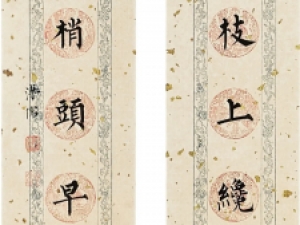 枝上纔
梢頭早